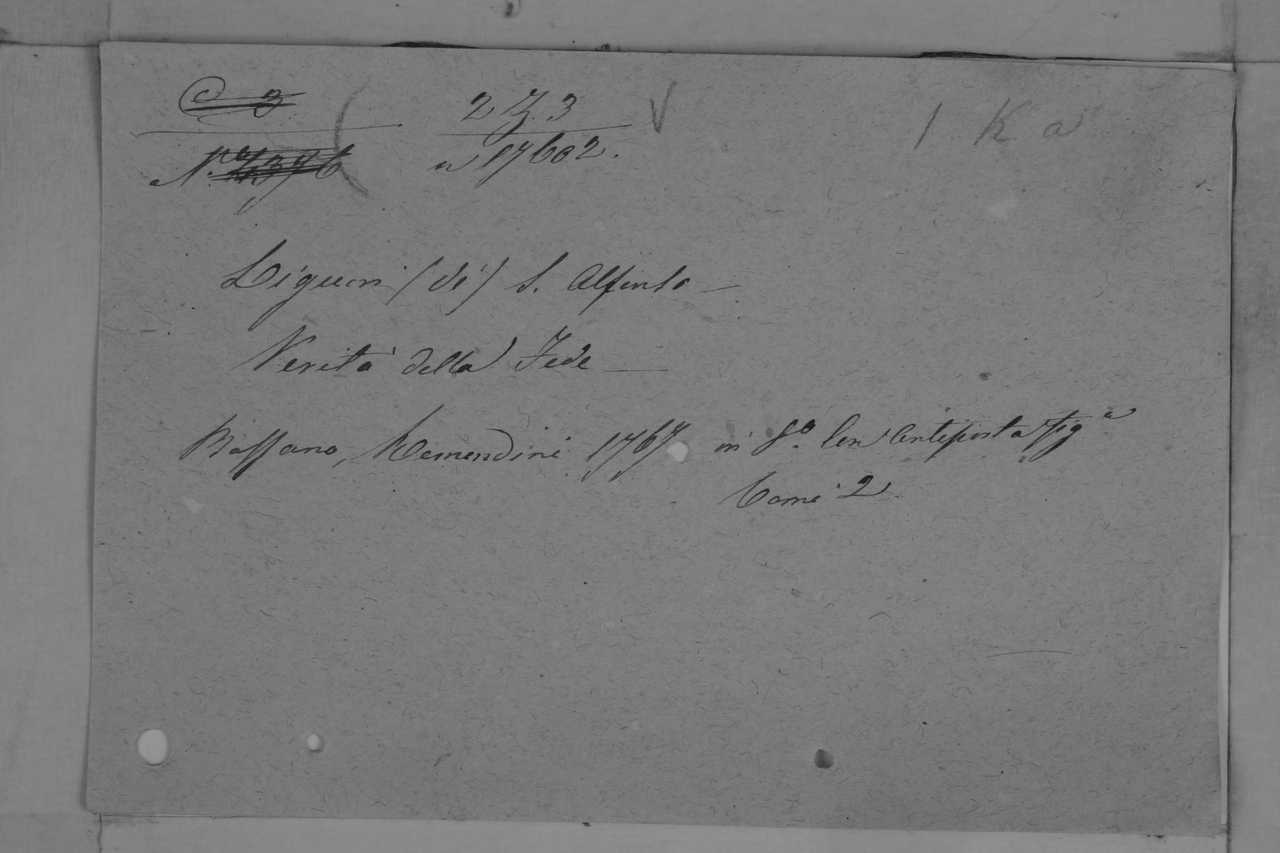 C 3 2 Z. 3 V 1 K a
N.° 4376 n 17602.
Liguori (di) S. Alfonso —
Verità della Fede —
Bassano, Remondini 1767 in 8.° Con Antiposta fig.a
Tomi 2